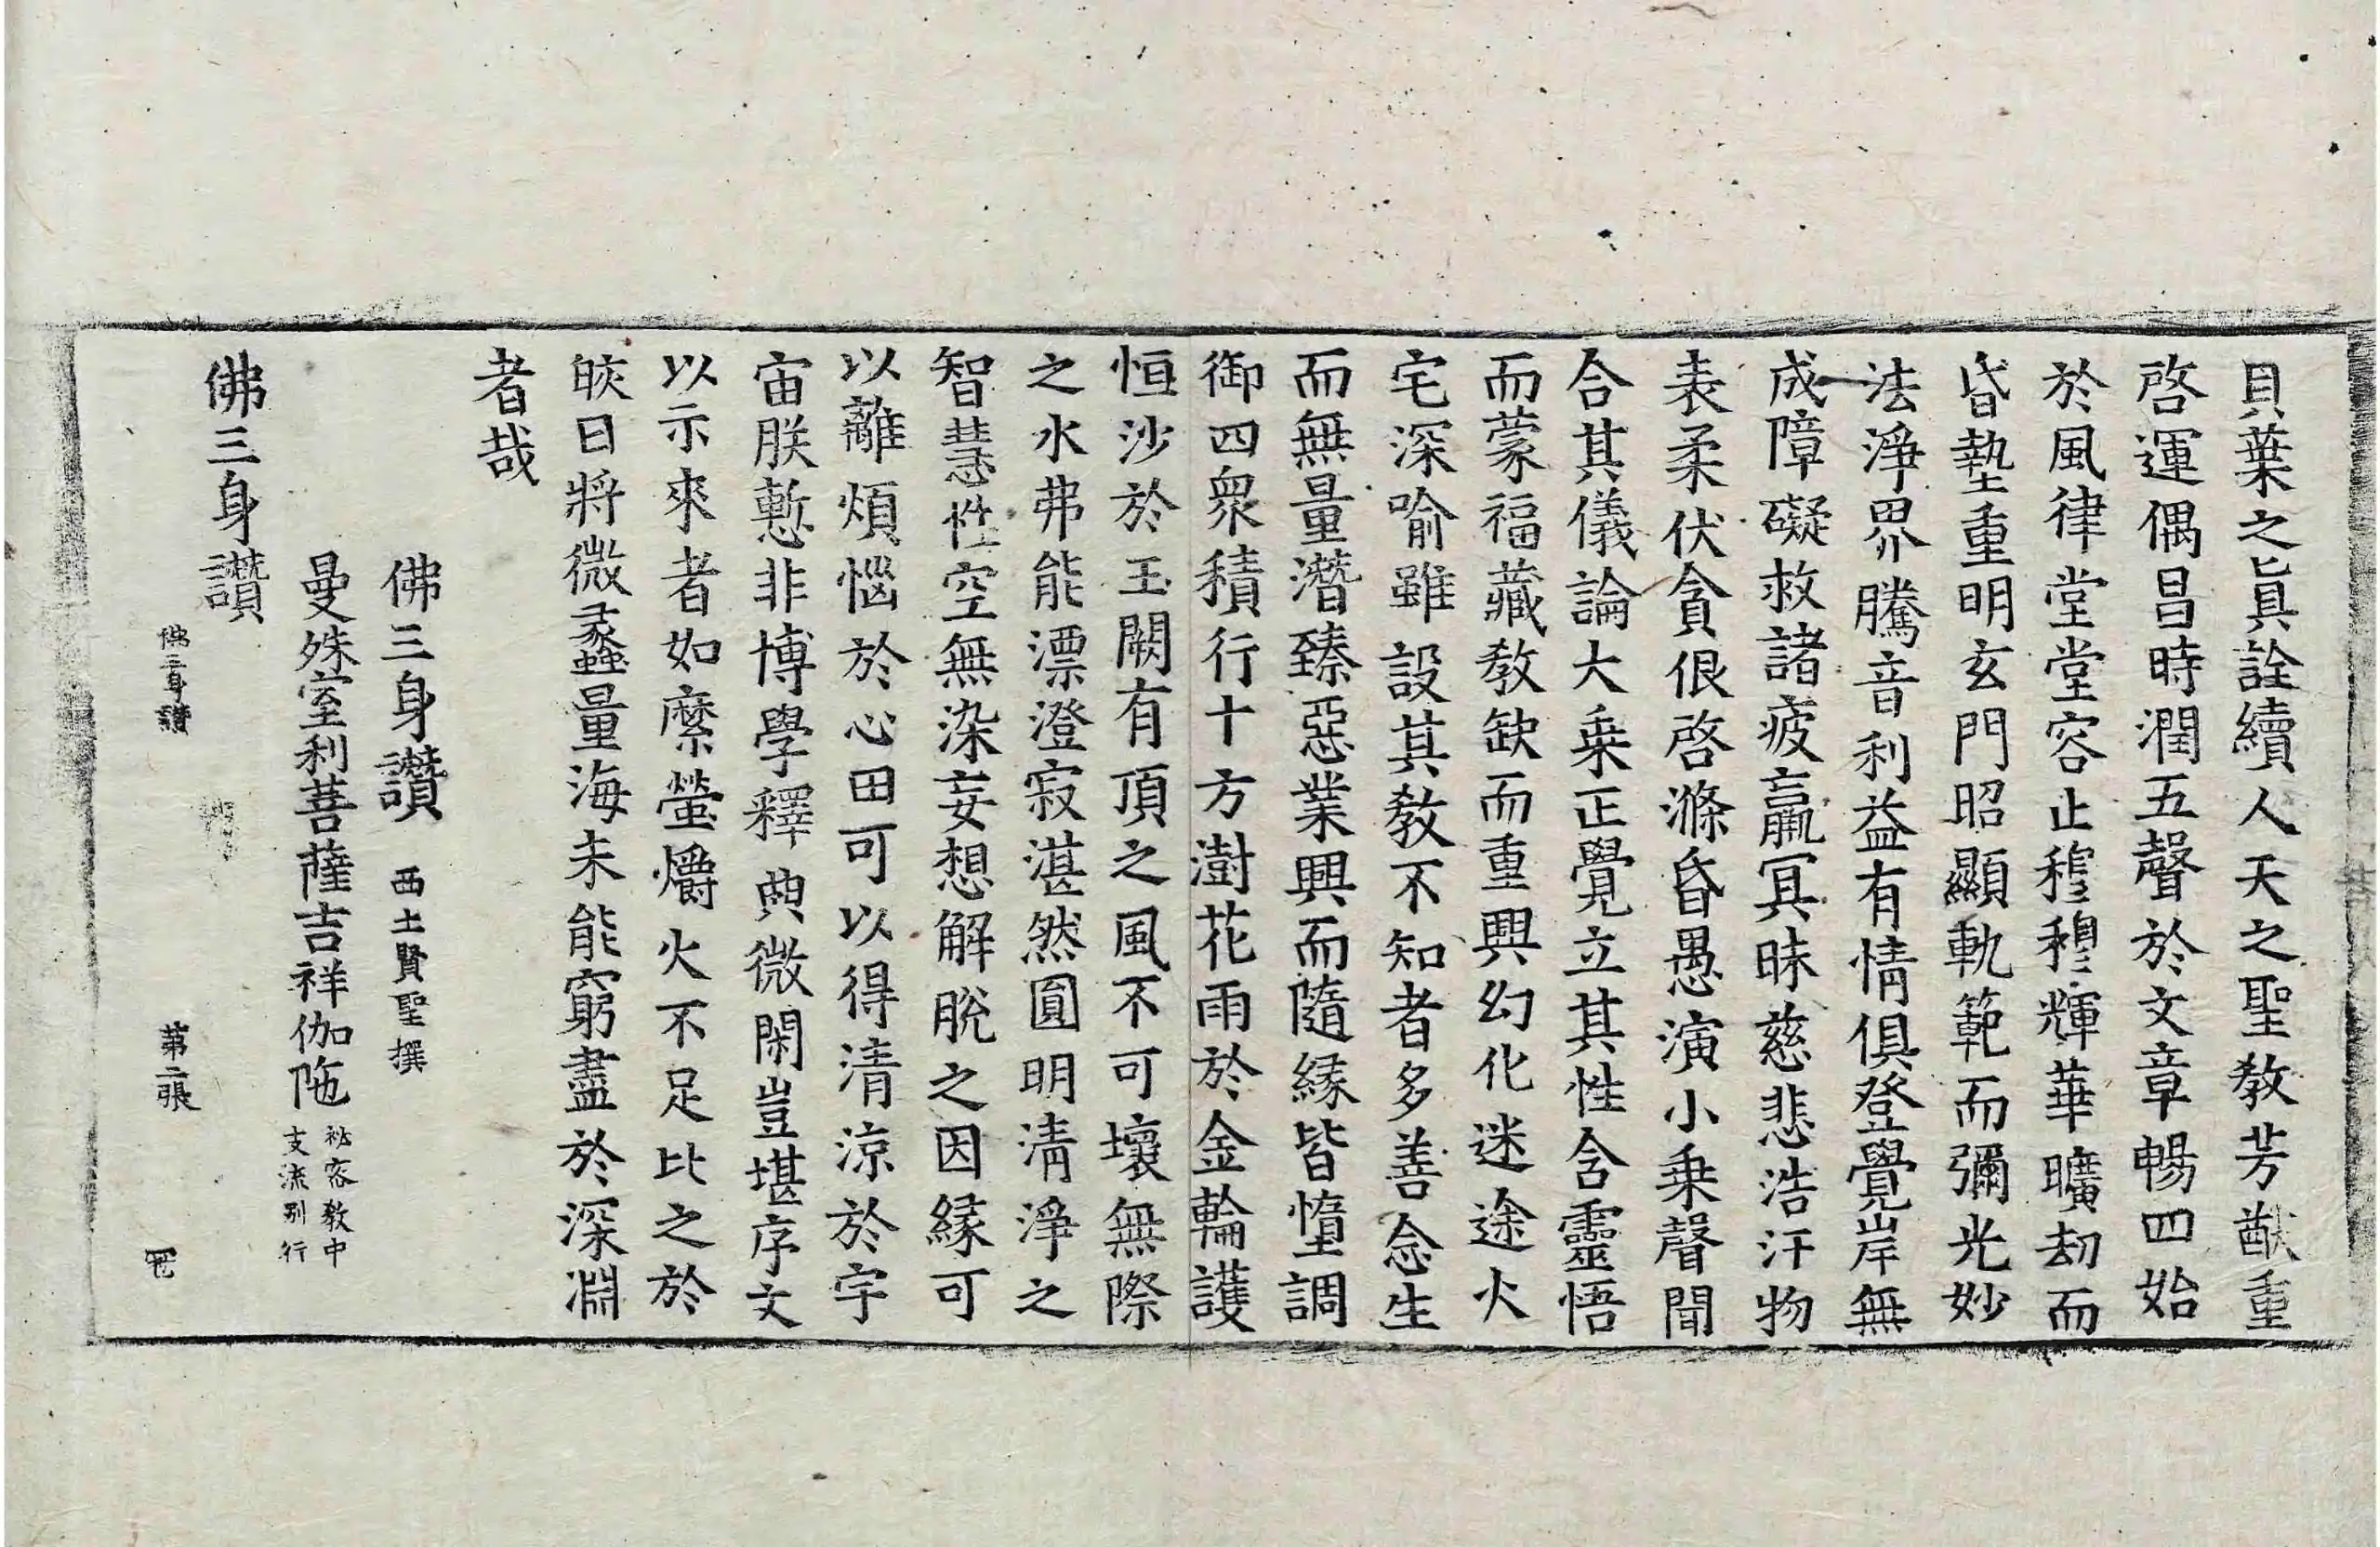 貝葉之眞詮續人天之聖教芳猷重
啓運偶昌時潤五聲於文章暢四始
於風律堂堂容止穆穆輝華曠劫而
昏墊重明玄門昭顯軌範而彌光妙
法淨界騰音利益有情俱登覺岸無
成障礙救諸疲羸冥昧慈悲浩汗物
表柔伏貪佷啓滌昏愚演小乗聲聞
合其儀論大乗正覺立其性含靈悟
而蒙福藏教缺而重興幻化迷途火
宅深喻雖設其教不知者多善念生
而無量潛臻惡業興而隨緣皆墮調
御四衆積行十方澍花雨於金輪護
恒沙於玉闕有頂之風不可壞無際
之水弗能漂澄寂湛然圓明淸淨之
智慧性空無染妄想解脫之因緣可
以離煩惱於心田可以得清涼於宇
宙朕慙非博學釋典微閑豈堪序文
以示來者如縻螢爝火不足比之於
皎日將微蠡量海未能窮盡於深淵
者哉
佛三身讚 西土賢聖撰
曼殊室利菩薩吉祥伽陁 祕密教中支流別行
佛三身讚
佛三身讚 第二張